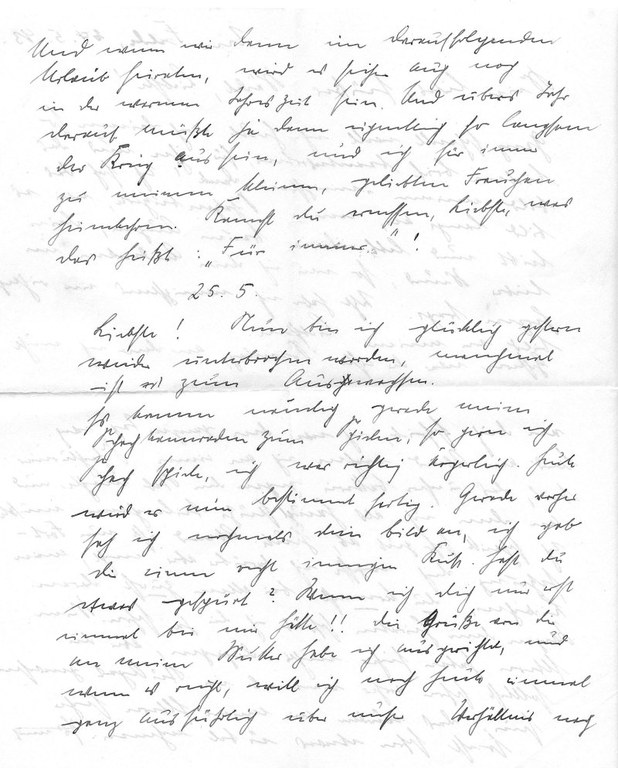 Und wenn wir dann im darauffolgenden
Urlaub heiraten, wird es sicher auch noch
in der warmen Jahreszeit sein. Und übers Jahr
darauf müßte ja dann eigentlich so langsam
der Krieg aus sein, und ich für immer
zu meinem kleinen, geliebten Frauchen
heimkehren. Kannst du ermessen, Liebste, was
das heißt: „Für immer"!
25. 5.
Liebste! Nun bin ich glücklich gestern
wieder unterbrochen worden, manchmal
ist es zum Auswachsen.
Es kamen nämlich gerade meine
Schachkameraden zum Spielen, so gern ich
Schach spiele, ich war richtig ärgerlich. Heute
wird er nun bestimmt fertig. Gerade vorher
sah ich nochmals dein Bild an, ich gab
dir einen recht innigen Kuß. Hast du
etwas gespürt? Wenn ich dich nur erst
einmal bei mir hätte!! Die Grüße von dir
an meine Mutter habe ich ausgerichtet, und
wenn es reicht, will ich noch heute einmal
ganz ausführlich über unser Verhältnis nach